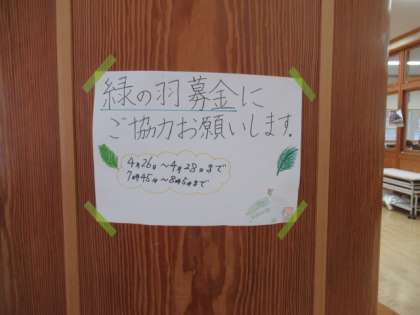 緑の羽募金に
ご協力お願いします.
4月26日～4月28日まで
7時45分～8時5分まで